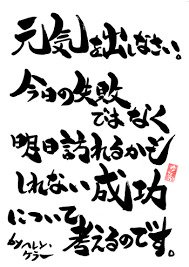 元気を出しなさい。
今日の失敗
ではなく
明日訪れるかも
しれない成功
について
考えるのです。
byヘレン・
ケラー